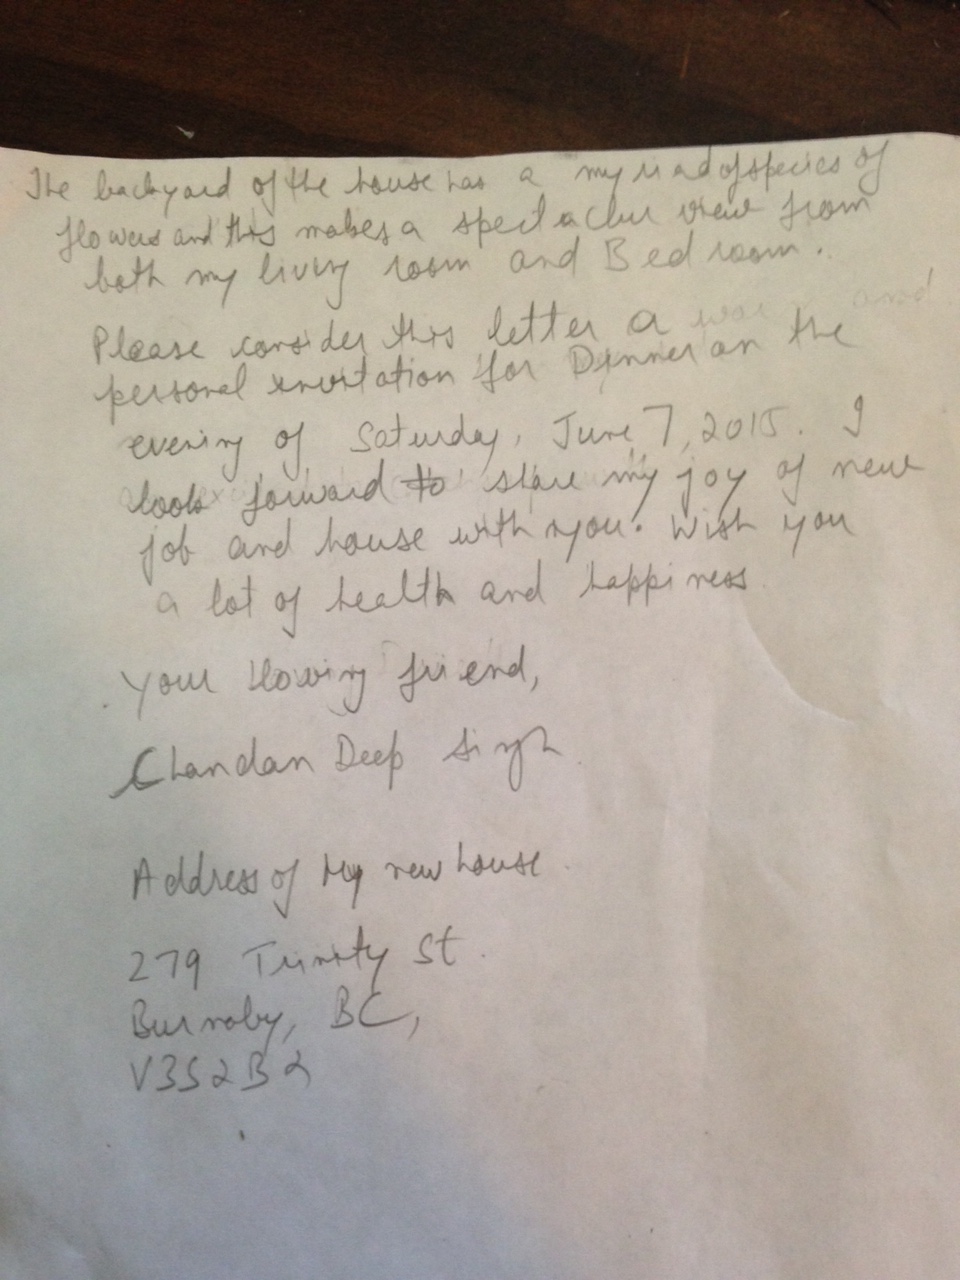 The backyard of the house has a myriad of species of
flowers and this makes a spectacular view from
both my living room and Bedroom.
Please consider this letter a and
personal invitation for Dinner on the
evening of Saturday, June 7, 2015. I
look forward to share my joy of new
job and house with you. Wish you
a lot of health and happiness.
Your loving friend,
Chandan Deep Singh
Address of My new house
279 Trinity St.
Burnaby, BC,
V3S2B2